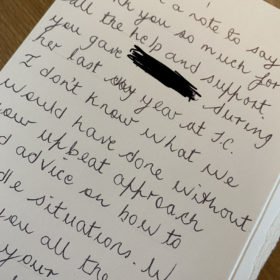 a note to say
you so much for
all the help and support
you gave during
her last year at J.C.
I don't know what we
would have done without
your upbeat approach
advice on how to
situations. W
you all the
your